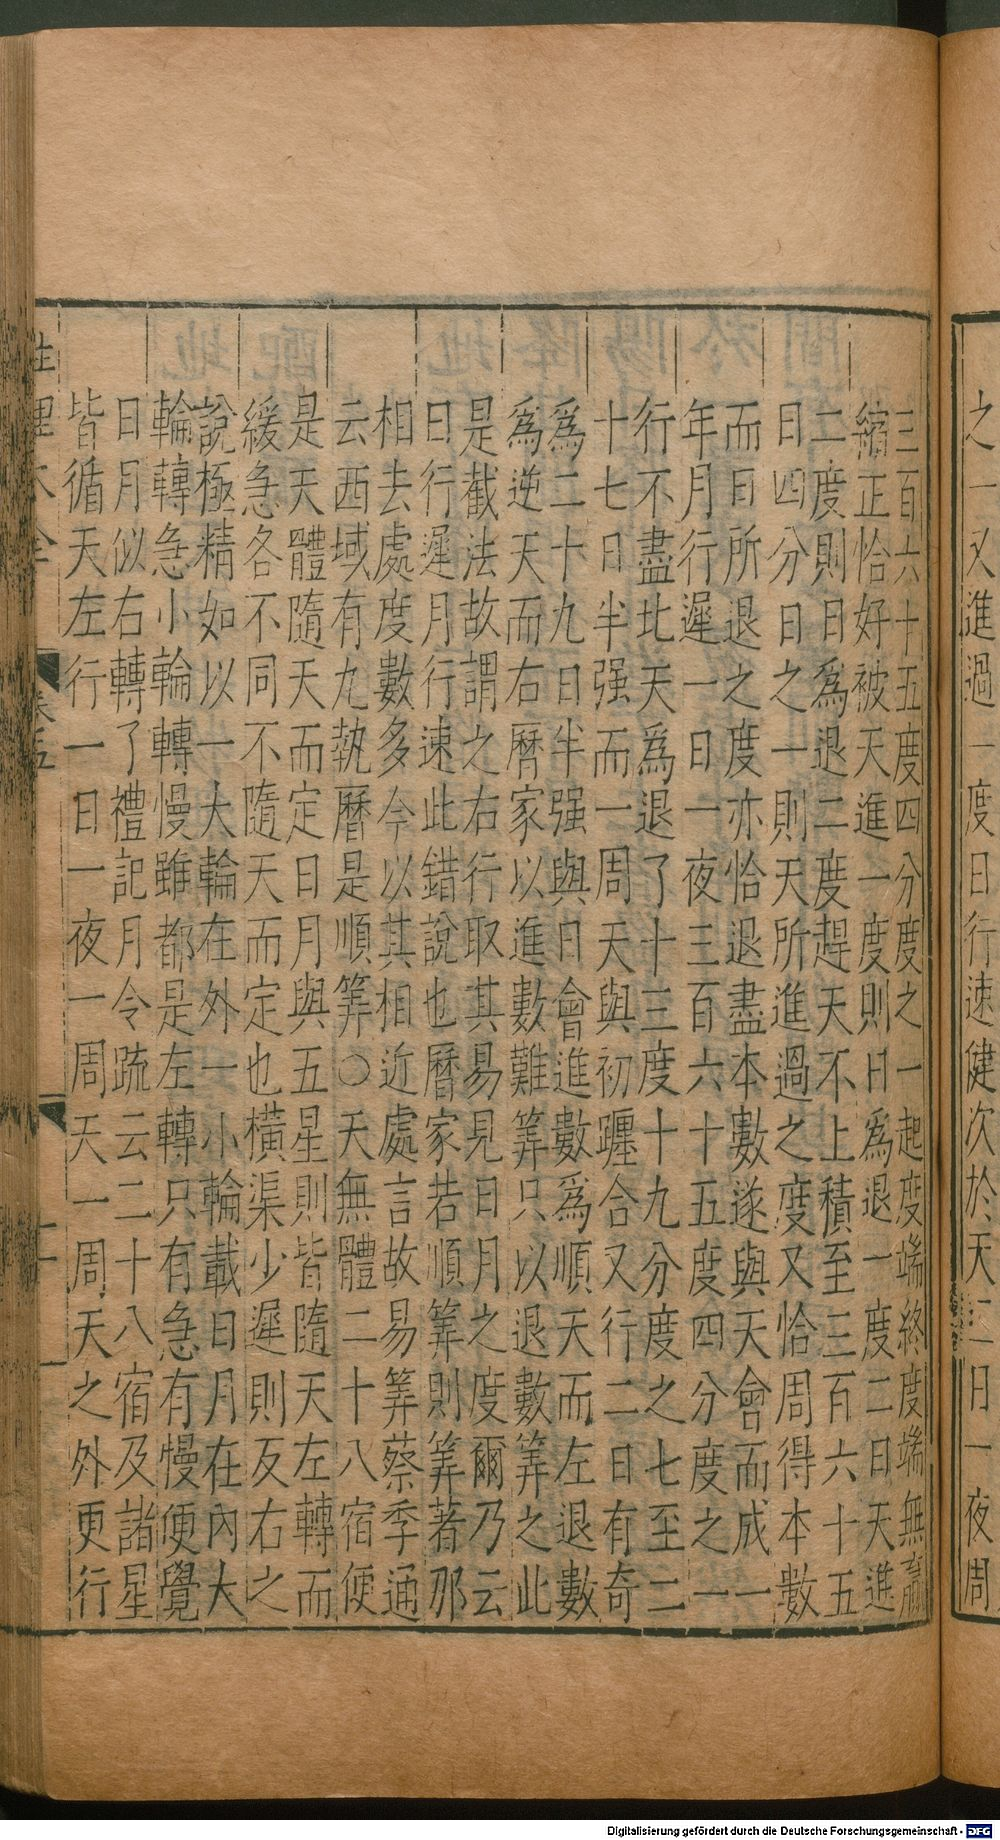 之一又進過一度日行速健次於天一日一夜周
三百六十五度四分度之一起度端終度端無贏
縮正恰好被天進一度則日爲退一度二日天進
二度則日爲退二度趕天不上積至三百六十五
日四分日之一則天所進過之度又恰周得本數
而日所退之度亦恰退盡本數遂與天會而成一
年月行遲一日一夜三百六十五度四分度之一
行不盡比天爲退了十三度十九分度之七至二
十七日半强而一周天與初躔合又行二日有奇
爲二十九日半强與日會進數爲順天而左退數
爲逆天而右曆家以進數難筭只以退數筭之此
是截法故謂之右行取其易見日月之度爾乃云
日行遲月行速此錯說也曆家若順筭則筭著那
相去處度數多今以其相近處言故易筭蔡季通
云西域有九執曆是順筭○天無體二十八宿便
是天體隨天而定日月與五星則皆隨天左轉而
緩急各不同不隨天而定也橫渠少遲則反右之
說極精如以一大輪在外一小輪載日月在內大
輪轉急小輪轉慢雖都是左轉只有急有慢便覺
日月似右轉了禮記月令疏云二十八宿及諸星
皆循天左行一日一夜一周天一周天之外更行
性理大全
卷五
十一
Digitalisierung gefördert durch die Deutsche Forschungsgemeinschaft - DFG